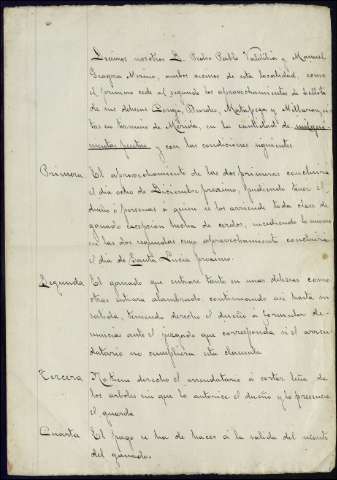 Decimos nosotros D. Pedro Pablo Valdivia y Manuel
Moreno, ambos vecinos de esta localidad, como
el primero cede al segundo los aprovechamientos de bellota
de sus dehesas Longa, Matapega y
en termino de Mérida, en la cantidad de
pesetas, y con las condiciones siguientes
Primera El aprovechamiento de las dos primeras concluirá
el dia ocho de Diciembre próximo, pudiendo tener el
dueño ó personas á quien se los arriende toda clase de
ganado excepcion hecha de cerdos, sucediendo lo mismo
en las dos segundas cuyo aprovechamiento concluirá
el dia de Santa Lucia próximo.
Segunda El ganado que entrare tanto en unas dehesas como
otras entrará alambrado, conservando asi hasta su
salida, teniendo derecho el dueño á formular de-
nuncias ante el juzgado que corresponda si el arren-
datario no cumpliera esta clausula
Tercera derecho el arrendatario á cortar leña de
los arboles sin que lo autorice el dueño y lo presencie
el guarda
Cuarta El pago se ha de hacer á la salida del
del ganado.